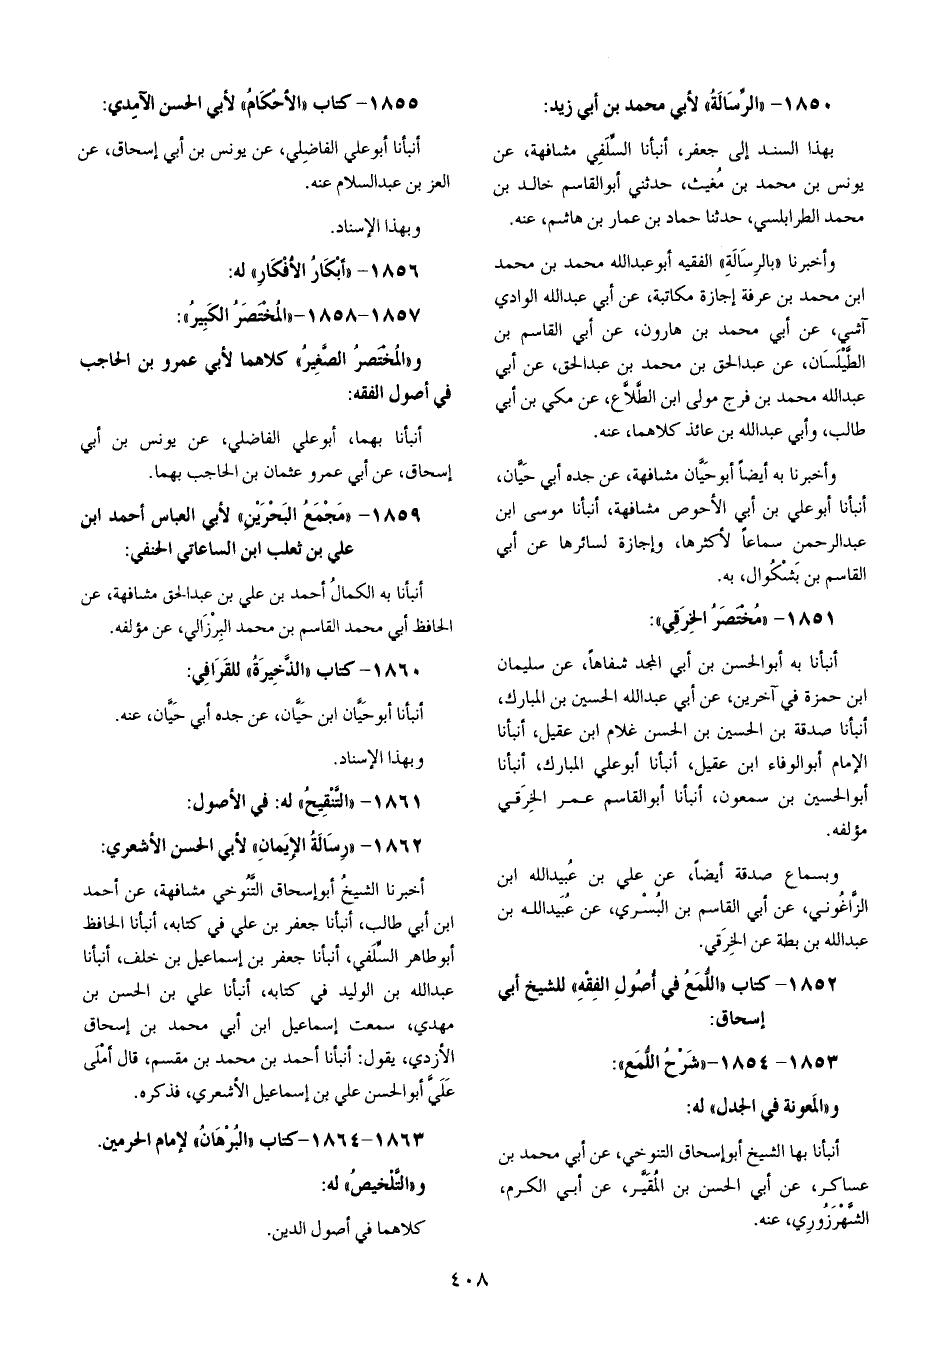 ١٨٥٠- «الرِّسَالَةُ» لأبي محمد بن أبي زيد:
بهذا السند إلى جعفر، أنبأنا السِّلَفي مشافهة، عن
يونس بن محمد بن مُغيث، حدثني أبوالقاسم خالد بن
محمد الطرابلسي، حدثنا حماد بن عمار بن هاشم، عنه.
وأخبرنا «بالرِسَالَةِ» الفقيه أبوعبدالله محمد بن محمد
ابن محمد بن عرفة إجازة مكاتبة، عن أبي عبدالله الوادي
آشي، عن أبي محمد بن هارون، عن أبي القاسم بن
الطَّيْلَسان، عن عبدالحق بن محمد بن عبدالحق، عن أبي
عبدالله محمد بن فرج مولى ابن الطَّلَّاع، عن مكي بن أبي
طالب، وأبي عبدالله بن عائذ كلاهما، عنه.
وأخبرنا به أيضاً أبوحَيَّان مشافهة، عن جده أبي حَيَّان،
أنبأنا أبوعلي بن أبي الأحوص مشافهة، أنبأنا موسى ابن
عبدالرحمن سماعاً لأكثرها، وإجازة لسائرها عن أبي
القاسم بن بَشْكُوال، به.
١٨٥١- «مُخْتَصَرُ الخِرَقِي»:
أنبأنا به أبوالحسن بن أبي المجد شفاهاً، عن سليمان
ابن حمزة في آخرين، عن أبي عبدالله الحسين بن المبارك،
أنبأنا صدقة بن الحسين بن الحسن غلام ابن عقيل، أنبأنا
الإمام أبوالوفاء ابن عقيل، أنبأنا أبوعلي المبارك، أنبأنا
أبوالحسين بن سمعون، أنبأنا أبوالقاسم عمر الخِرَقي
مؤلفه.
وبسماع صدقة أيضاً، عن علي بن عُبيدالله ابن
الزَّاغُوني، عن أبي القاسم بن البُسْري، عن عُبَيدالله بن
عبدالله بن بطة عن الخِرَقي.
١٨٥٢- كتاب «اللُّمَعُ في أُصُولِ الفِقْهِ» للشيخ أبي
إسحاق:
١٨٥٣- ١٨٥٤-«شَرْحُ اللُّمَعِ»:
و«المَعونة في الجدل» له:
أنبأنا بها الشيخ أبوإسحاق التنوخي، عن أبي محمد بن
عساكر، عن أبي الحسن بن المُقَيَّر، عن أبي الكرم،
الشَّهْرَزُوري، عنه.
١٨٥٥- كتاب «الأحْكَامُ» لأبي الحسن الآمِدي:
أنبأنا أبوعلي الفاضِلي، عن يونس بن أبي إسحاق، عن
العز بن عبدالسلام عنه.
وبهذا الإسناد.
١٨٥٦- «أبْكَارُ الأفْكَارِ» له:
١٨٥٧-١٨٥٨-«المُخْتَصَرُ الكَبِيرُ»:
و«المُخْتَصرُ الصَّغِيرُ» كلاهما لأبي عمرو بن الحاجب
في أصول الفقه:
أنبأنا بهما، أبوعلي الفاضلي، عن يونس بن أبي
إسحاق، عن أبي عمرو عثمان بن الحاجب بهما.
١٨٥٩- «مَجْمَعُ البَحْرَيْنِ» لأبي العباس أحمد ابن
علي بن ثعلب ابن الساعاتي الحنفي:
أنبأنا به الكمالُ أحمد بن علي بن عبدالحق مشافهة، عن
الحافظ أبي محمد القاسم بن محمد البِرْزَالي، عن مؤلفه.
١٨٦٠- كتاب «الذَّخِيرَةُ» للقَرَافي:
أنبأنا أبوحَيَّان ابن حَيَّان، عن جده أبي حَيَّان، عنه.
وبهذا الإسناد.
١٨٦١- «التَّنْقِيحُ» له: في الأصول:
١٨٦٢- «رِسَالَةُ الإيَمانِ» لأبي الحسن الأشعري:
أخبرنا الشيخُ أبوإسحاق التَّنُوخي مشافهة، عن أحمد
ابن أبي طالب، أنبأنا جعفر بن علي في كتابه، أنبأنا الحافظ
أبوطاهر السِّلَفي، أنبأنا جعفر بن إسماعيل بن خلف، أنبأنا
عبدالله بن الوليد في كتابه، أنبأنا علي بن الحسن بن
مهدي، سمعت إسماعيل ابن أبي محمد بن إسحاق
الأزدي، يقول: أنبأنا أحمد بن محمد بن مقسم، قال أمْلَى
عَلَيَّ أبوالحسن علي بن إسماعيل الأشعري، فذكره.
١٨٦٣-١٨٦٤-كتاب «البُرْهَانُ» لإمام الحرمين.
و«التَّلْخيصُ» له:
كلاهما في أصول الدين.
٤٠٨